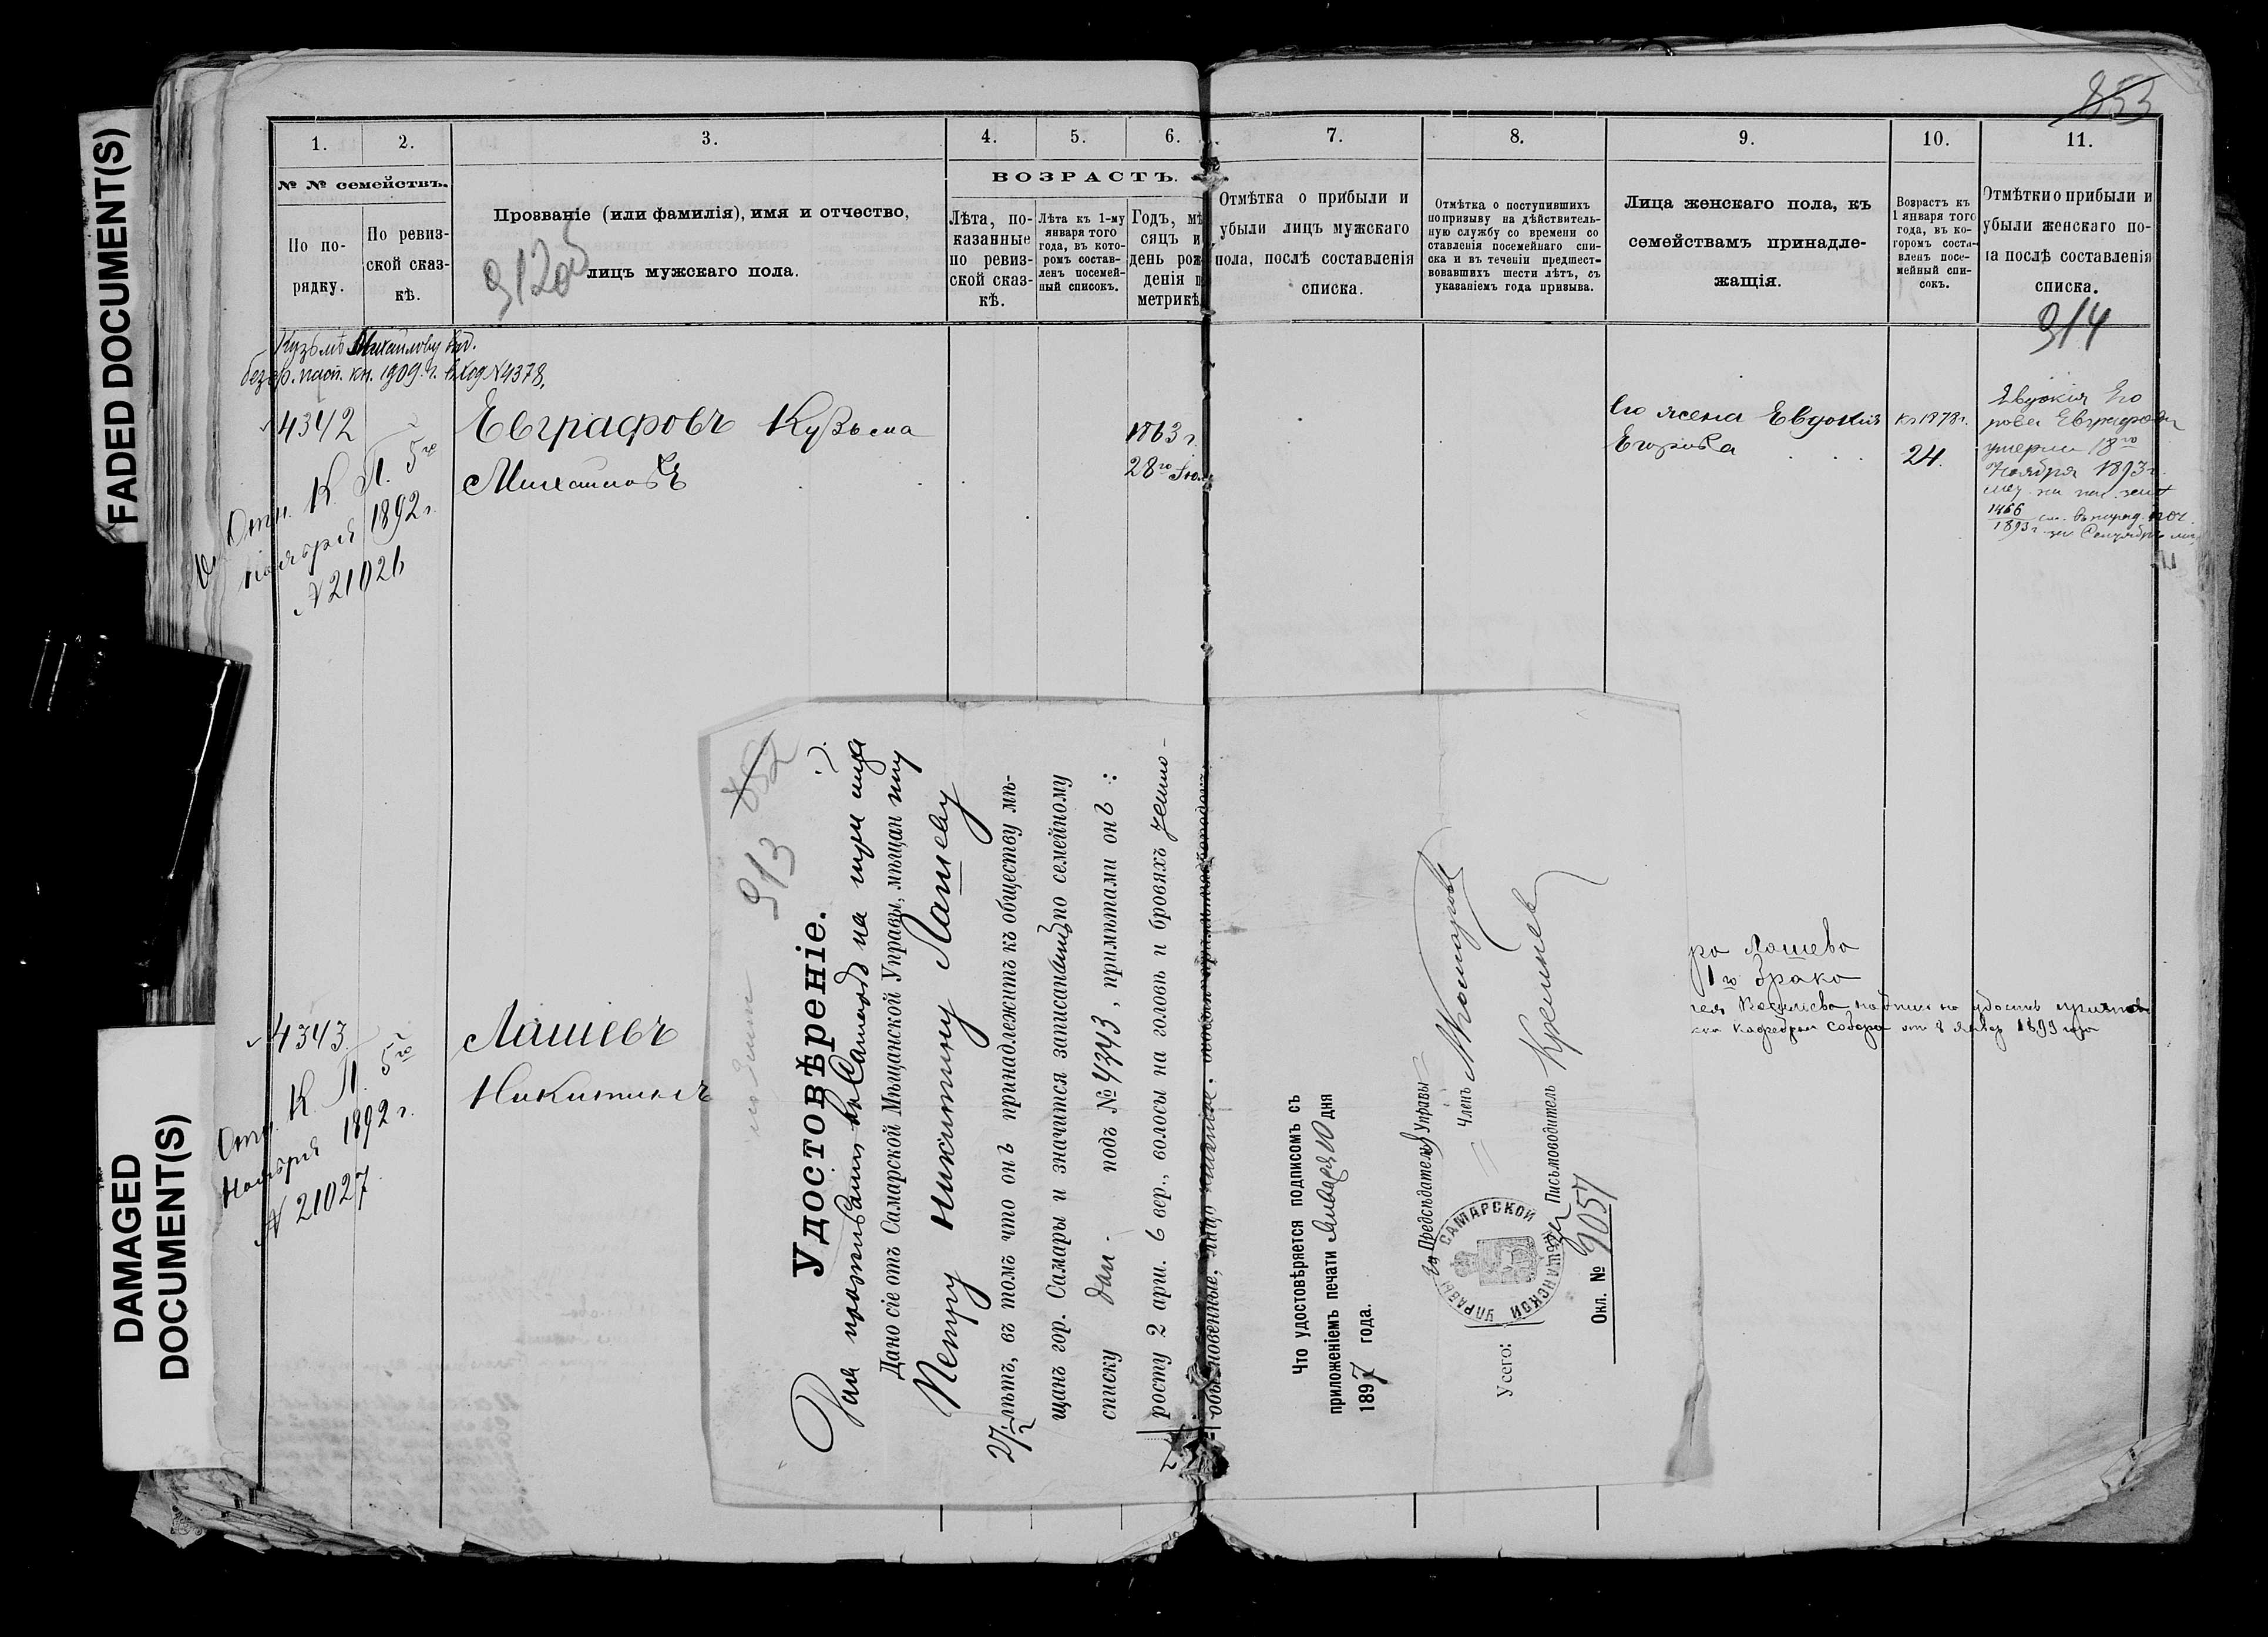 FADED DOCUMENT(S)
DAMAGED
DOCUMENT(S)
853
1. 2. 3. 4. 5. 6. 7. 8. 9. 10. 11.
№ № семействъ.
По по-
рядку.
По ревиз-
ской сказ-
кѣ.
Прозваніе (или фамилія), имя и отчество,
лицъ мужскаго пола.
912об
ВОЗРАСТЪ.
Лѣта, по-
казанные
по ревиз-
ской сказ-
кѣ.
Лѣта къ 1-му
января того
года, въ кото-
ромъ состав-
ленъ посемей-
ный списокъ.
Годъ, мѣ
сяцъ и
день рож
денія п
метрикѣ
Отмѣтка о прибыли и
убыли лицъ мужскаго
пола, послѣ составленія
списка.
Отмѣтка о поступившихъ
по призыву на дѣйствитель-
ную службу со времени со
ставленія посемейнаго спи-
ска и въ теченіи предшест-
вовавшихъ шести лѣтъ, съ
указаніемъ года призыва.
Лица женскаго пола, къ
семействамъ принадле-
жащія.
Возрастъ къ
1 января того
года, въ ко-
горомъ соста-
вленъ посе-
мейный спи-
сокъ.
Отмѣтки о прибыли и
убыли женскаго по-
ла послѣ составленія
списка.
914
Кузьмѣ Михайлову выд.
безср. пасп. кн. 1909 г. вход №4378.
4342
Отн. К. П. 5го
ноября 1892 г.
№ 21026
Евграфовъ Кузьма
Михайловъ
1863 г.
28го Іюл
Его жена Евдокія
Егорова
Къ 1878 г.
24.
Евдокія Его
рова Евграфова
умерла 18го
Ноября 1893 г.
1466
1893 г.
4343
Отн. К. П. 5го
Ноября 1892 г.
№ 21027
Лашевъ
Никитинъ
852
913
Удостовѣреніе.
Для проживанія въ Самарѣ на три м-ца
Дано сіе отъ Самарской Мѣщанской Управы, мѣщан ину
Петру Никитину Лашеву
27 лѣтъ, въ томъ что онъ принадлежитъ къ обществу мѣ-
щанъ гор. Самары и значится записаннымъ по семейному
списку подъ № 4343, примѣтами онъ:
росту 2 арш. 6 вер., волосы на головѣ и бровяхъ темно-
обыкновенные, лицо
Что удостовѣряется подписомъ съ
приложеніемъ печати Января 10 дня
1897 года.
За Предсѣдателя Управы
Членъ
Письмоводитель
САМАРСКОЙ МѢЩАНСКОЙ УПРАВЫ
У сего:
Окл. № 9057
ра Лашева
1го брака
Кафедрал Собора от 8 Янвр 1899 года